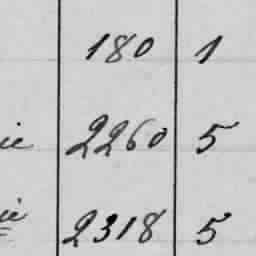 180 1
ie 2260 5
ie 2318 5